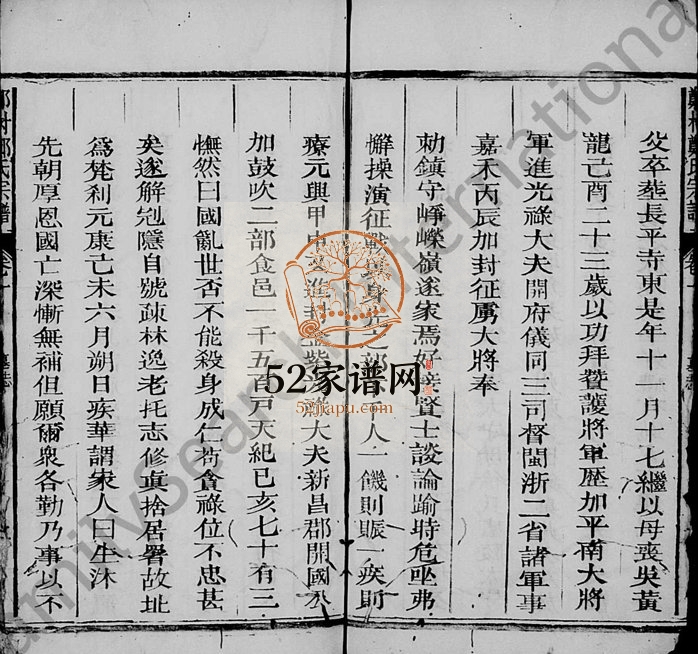 父卒葬長平寺東是年十一月十七繼以母喪吳黃
龍己酉二十三歲以功拜贊護將軍歷加平南大將
軍進光祿大夫開府儀同三司督閩浙二省諸軍事
嘉禾丙辰加封征虜大將奉
勑鎮守崢嶸嶺遂家焉好接賢士談論踰時危坐弗
懈操演征戰 身 部 人一饑則賑一疾則
療元興甲申 進封 紫 祿大夫新昌郡開國公
加鼓吹二部食邑一千五百戸天紀已亥七十有三
憮然曰國亂世否不能殺身成仁苟貪祿位不忠甚
矣遂解冠隱自號疎林逸老托志修眞捨居署故址
為梵刹元康己未六月朔日疾華謂衆人曰生沐
先朝厚恩國亡深慚無補但願爾衆各勤乃事以不
村鄭氏宗譜
卷一
墓誌
52家谱网
52jiapu.com
FamilySearch International